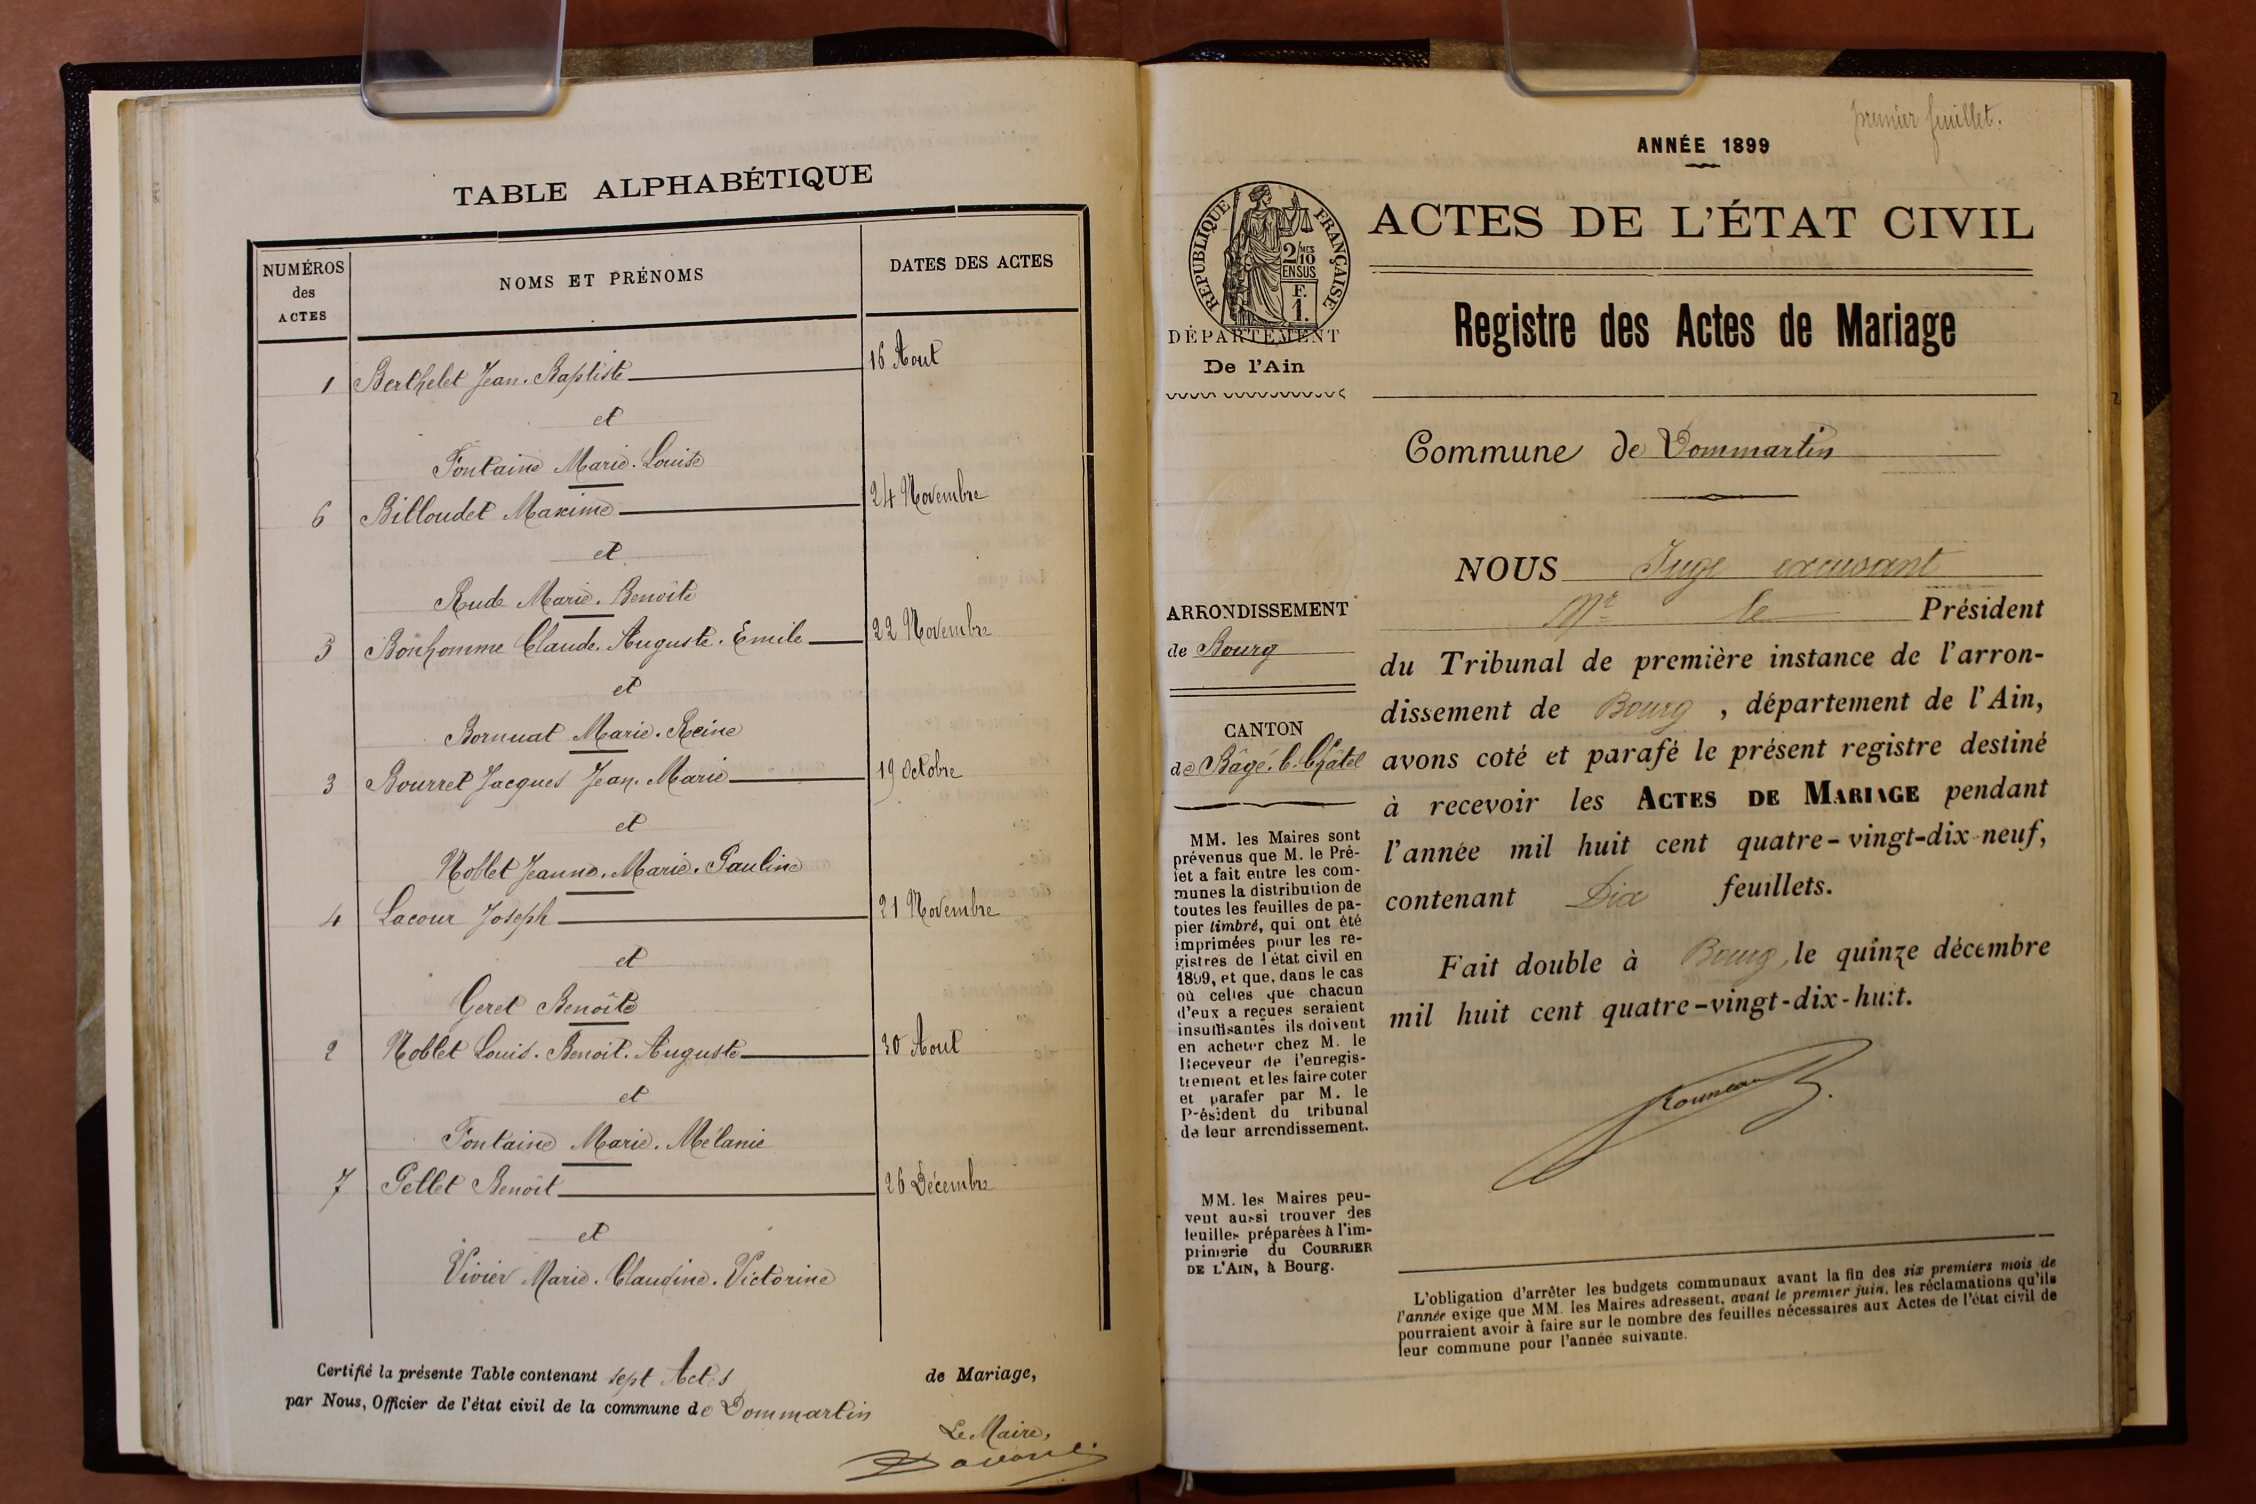 TABLE ALPHABÉTIQUE
NUMÉROS
des
ACTES
NOMS ET PRÉNOMS
DATES DES ACTES
1 Berthelet Jean-Baptiste 16 Aout
et
Fontaine Marie-Louise
6 Billoudet Maxime 24 Novembre
et
Rude Marie-Benoîte
5 Bonhomme Claude-Auguste-Emile 22 Novembre
et
Bornuat Marie-Reine
3 Bourret Jacques Jean-Marie 19 Octobre
et
Noblet Jeanne-Marie-Pauline
4 Lacour Joseph 21 Novembre
et
Geret Benoîte
2 Noblet Louis-Benoit-Auguste 30 Aout
et
Fontaine Marie-Mélanie
7 Pellet Benoît 26 Décembre
et
Vivier Marie-Claudine-Victorine
Certifié la présente Table contenant sept Actes de Mariage,
par Nous, Officier de l'état civil de la commune de Dommartin
Le Maire,
premier feuillet.
ANNÉE 1899
RÉPUBLIQUE FRANÇAISE
2/10 MES
EN SUS
F.
1.
DÉPARTEMENT
De l'Ain
ACTES DE L'ÉTAT CIVIL
Registre des Actes de Mariage
Commune de Dommartin
ARRONDISSEMENT
de Bourg
CANTON
de Bâgé-l-Châtel
MM. les Maires sont
prévenus que M. le Pré-
fet a fait entre les com-
munes la distribution de
toutes les feuilles de pa-
pier timbré, qui ont été
imprimées pour les re-
gistres de l'état civil en
1899, et que, dans le cas
où celles que chacun
d'eux a reçues seraient
insuffisantes ils doivent
en acheter chez M. le
Receveur de l'enregis-
trement et les faire coter
et parafer par M. le
Président du tribunal
de leur arrondissement.
MM. les Maires peu-
vent aussi trouver des
feuilles préparées à l'im-
primerie du COURRIER
DE L'AIN, à Bourg.
NOUS Juge excusant
Mr le Président
du Tribunal de première instance de l'arron-
dissement de Bourg, département de l'Ain,
avons coté et parafé le présent registre destiné
à recevoir les ACTES DE MARIAGE pendant
l'année mil huit cent quatre-vingt-dix-neuf,
contenant Dix feuillets.
Fait double à Bourg, le quinze décembre
mil huit cent quatre-vingt-dix-huit.
L'obligation d'arrêter les budgets communaux avant la fin des six premiers mois de
l'année exige que MM. les Maires adressent, avant le premier juin, les réclamations qu'ils
pourraient avoir à faire sur le nombre des feuilles nécessaires aux Actes de l'état civil de
leur commune pour l'année suivante.